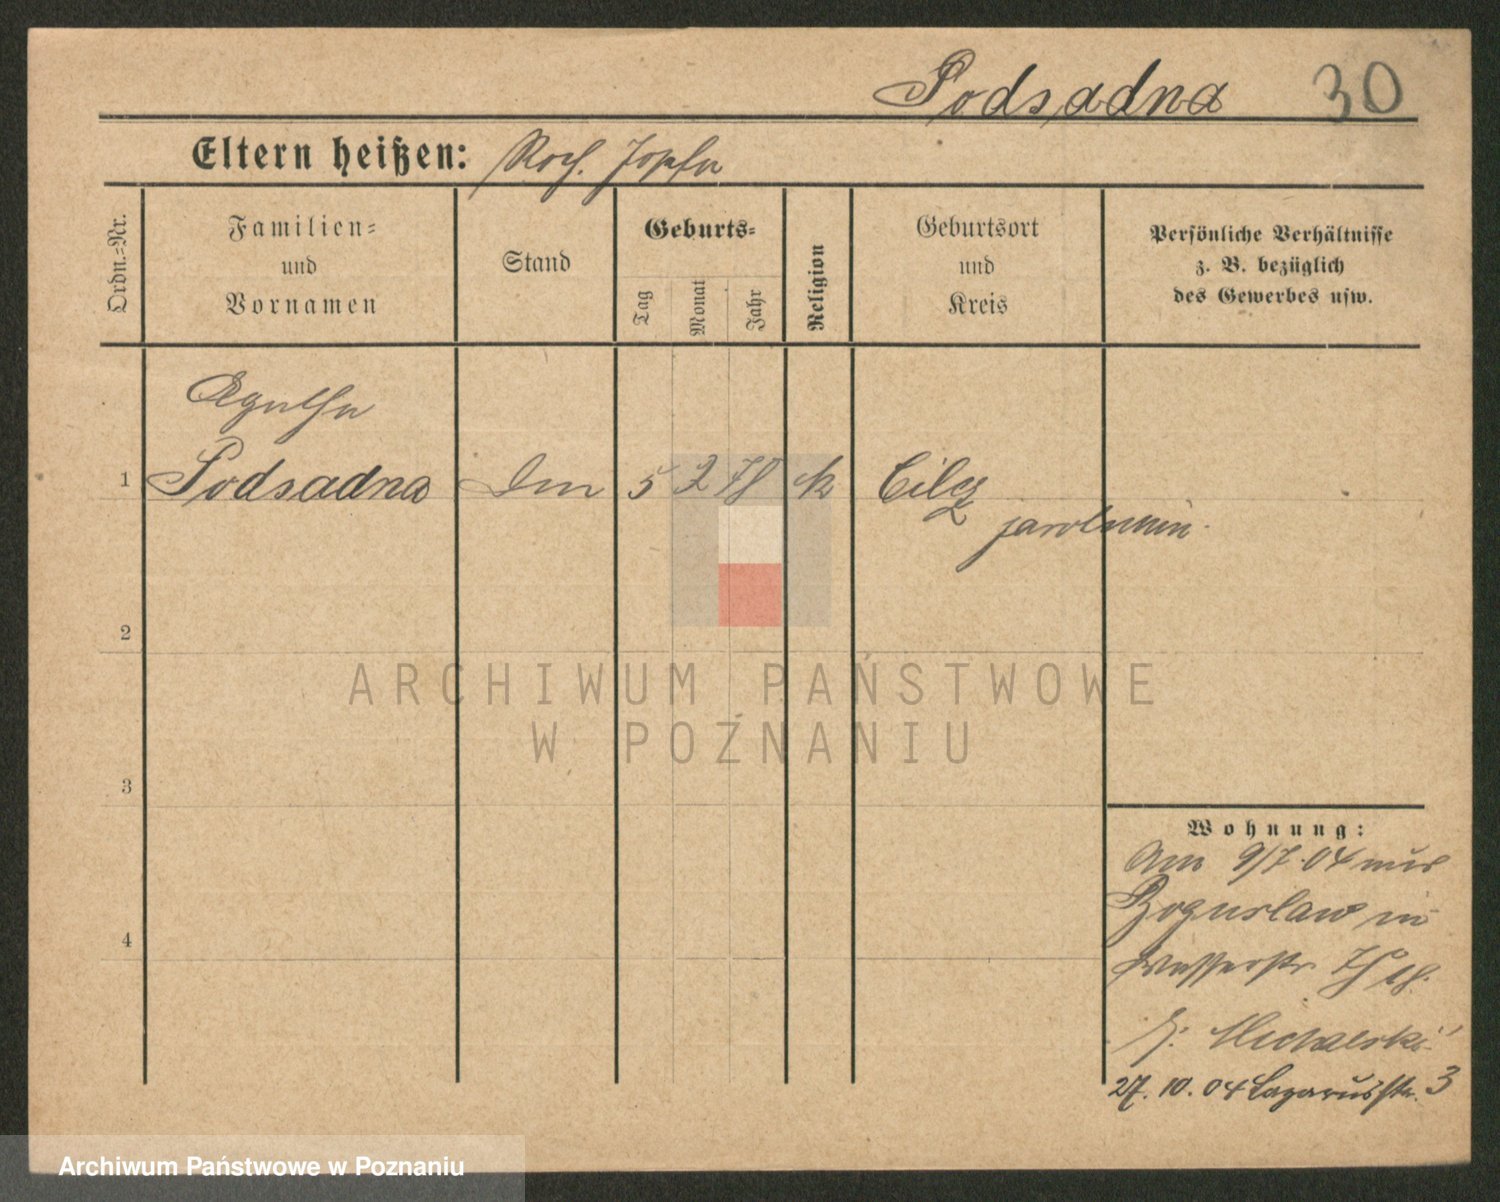 Podsadna 30
Eltern heißen: Roch. Josefa
Ordn.-Nr.
Familien-
und
Vornamen
Stand
Geburts-
Tag
Monat
Jahr
Religion
Geburtsort
und
Kreis
Persönliche Verhältnisse
z. B. bezüglich
des Gewerbes usw.
Agatha
1 Podsadna 5 2 78 k
2
3
4
Wohnung:
Am 9/7.04 aus
Boguslaw in
Wasserstr
Michalski
27.10.04 Lazarusstr. 3
ARCHIWUM PAŃSTWOWE
W POZNANIU
Archiwum Państwowe w Poznaniu